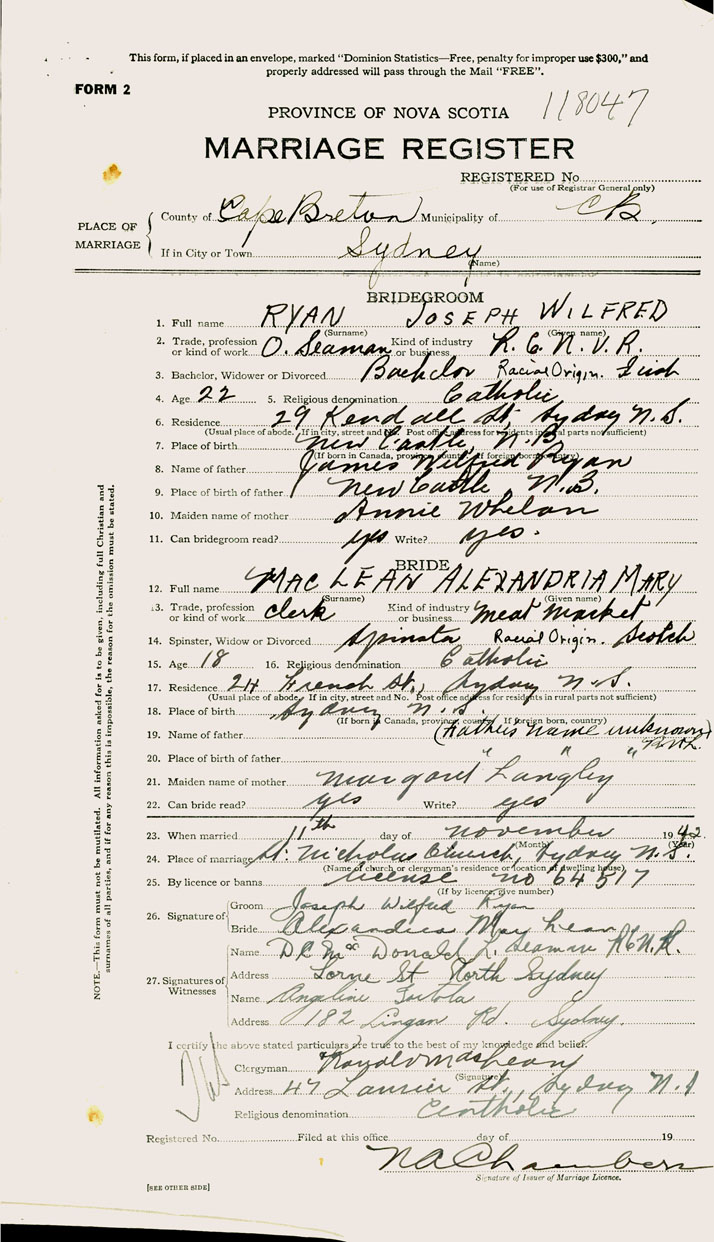 This form, if placed in an envelope, marked "Dominion Statistics—Free, penalty for improper use $300," and
properly addressed will pass through the Mail "FREE".
FORM 2
118047
PROVINCE OF NOVA SCOTIA
MARRIAGE REGISTER
REGISTERED No.
(For use of Registrar General only)
PLACE OF MARRIAGE
County of Cape Breton Municipality of C B.
If in City or Town Sydney
(Name)
BRIDEGROOM
1. Full name RYAN JOSEPH WILFRED
(Surname) (Given name)
2. Trade, profession or kind of work O. Seaman Kind of industry or business R. C. N. V. R.
3. Bachelor, Widower or Divorced Bachelor Racial Origin. Irish
4. Age 22 5. Religious denomination Catholic
6. Residence 29 Kendall St, Sydney N. S.
(Usual place of abode. If in city, street and No. Post office address for residents in rural parts not sufficient)
7. Place of birth New Castle, N. B.
(If born in Canada, province, county. If foreign born, country)
8. Name of father James Wilfred Ryan
9. Place of birth of father New Castle N.B.
10. Maiden name of mother Annie Whelan
11. Can bridegroom read? yes Write? yes.
BRIDE
12. Full name MACLEAN ALEXANDRIA MARY
(Surname) (Given name)
13. Trade, profession or kind of work clerk Kind of industry or business Meat Market
14. Spinster, Widow or Divorced Spinster Racial Origin. Scotch
15. Age 18 16. Religious denomination Catholic
17. Residence 24 French St., Sydney N. S.
(Usual place of abode. If in city, street and No. Post office address for residents in rural parts not sufficient)
18. Place of birth Sydney N. S.
(If born in Canada, province, county. If foreign born, country)
19. Name of father (Fathers name unknown)
20. Place of birth of father " " "
21. Maiden name of mother Margaret Langley
22. Can bride read? yes Write? yes
23. When married 11th day of November 1942.
(Month) (Year)
24. Place of marriage St. Nicholas Church, Sydney N. S.
(Name of church or clergyman's residence or location of dwelling house)
25. By licence or banns license no 64517
(If by licence, give number)
26. Signature of
Groom Joseph Wilfred Ryan
Bride Alexandria May Lean
27. Signatures of Witnesses
Name Donald L. Seaman
Address Lorne St North Sydney
Name Angeline
Address 182 Lingan Rd. Sydney.
I certify the above stated particulars are true to the best of my knowledge and belief.
Clergyman Ronald
(Signature)
Address 47 Laurier St., Sydney N. S
Religious denomination Catholic
Registered No. Filed at this office day of 19
N A Chambers
Signature of Issuer of Marriage Licence.
[SEE OTHER SIDE]
NOTE.—This form must not be mutilated. All information asked for is to be given, including full Christian and
surnames of all parties, and if for any reason this is impossible, the reason for the omission must be stated.